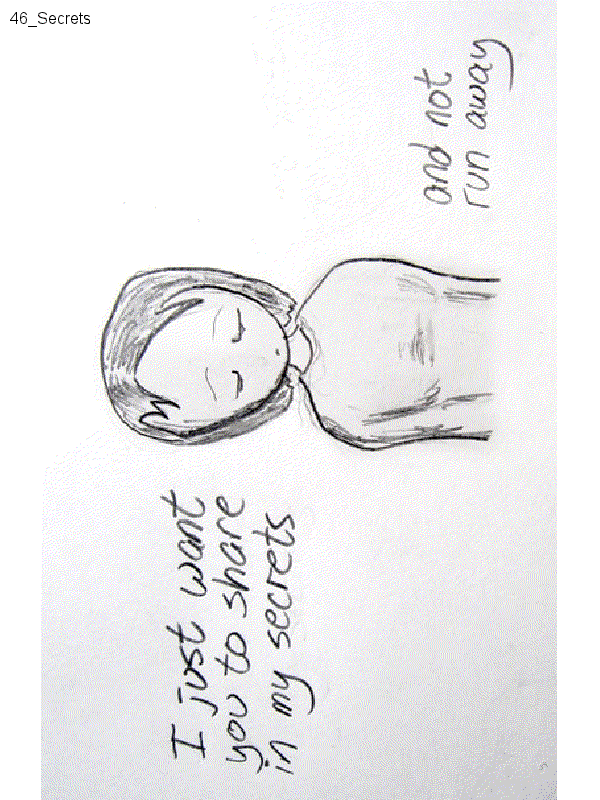 46_Secrets
I just want
you to share
in my secrets
and not
run away